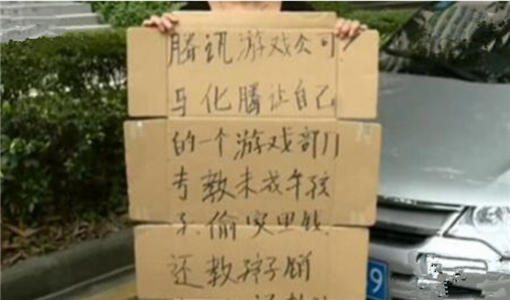 腾讯游戏公司
马化腾让自己
的一个游戏部门
专教未成年孩
子.偷家里钱
还教孩子销
9